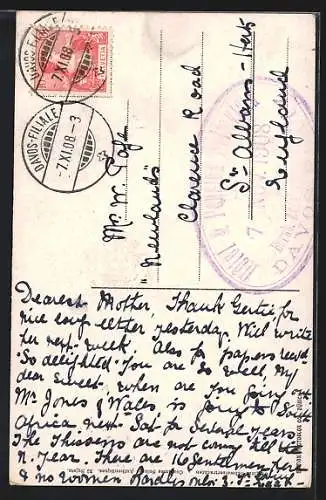 DAVOS-FILIALE
7.XI.08
HELVETIA
DAVOS-FILIALE
-7.XI.08-3
Mrs. W. Page
"Newlands"
Clarence Road
St. Albans - Herts
England
7 1908
DAVOS
Dearest Mother, Thank Gertie for
nice long letter yesterday. Will write
her next week. Also for papers recd
So delighted you are so well, My
dear sweet, when are you going out
Mr Jones & Wales is going to South
Africa next Sat for several years
The not coming till the
N. year. There are 16 gentlemen here
& no women